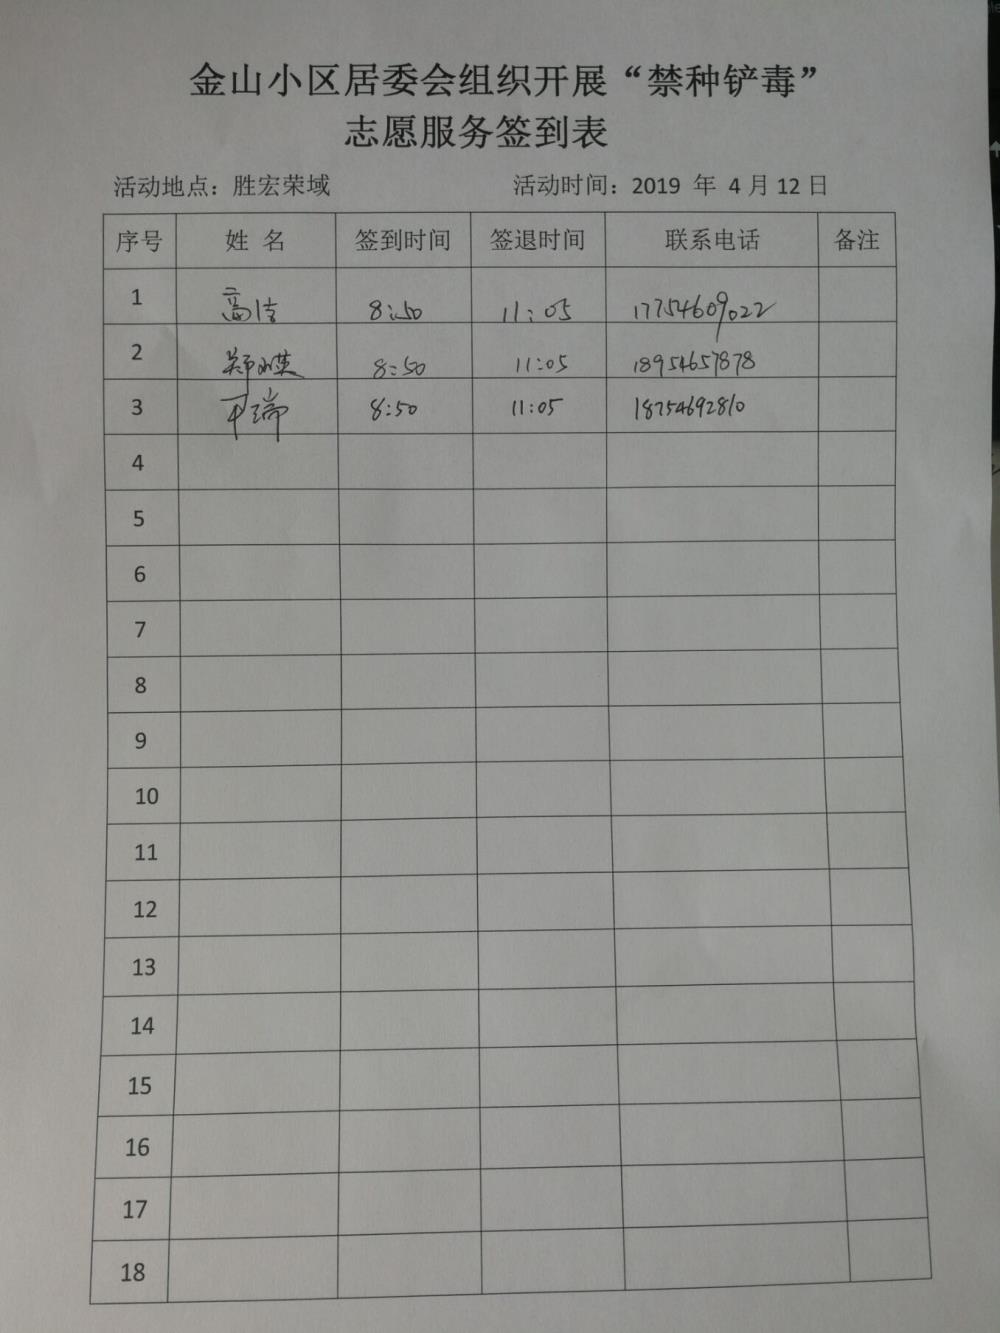 金山小区居委会组织开展“禁种铲毒”
志愿服务签到表
活动地点：胜宏荣域 活动时间：2019 年 4 月 12 日
序号 姓 名 签到时间 签退时间 联系电话 备注
1 高洁 8:50 11:05 17754609022
2 郑小英 8:50 11:05 18954657878
3 王瑞 8:50 11:05 18754692810
4
5
6
7
8
9
10
11
12
13
14
15
16
17
18